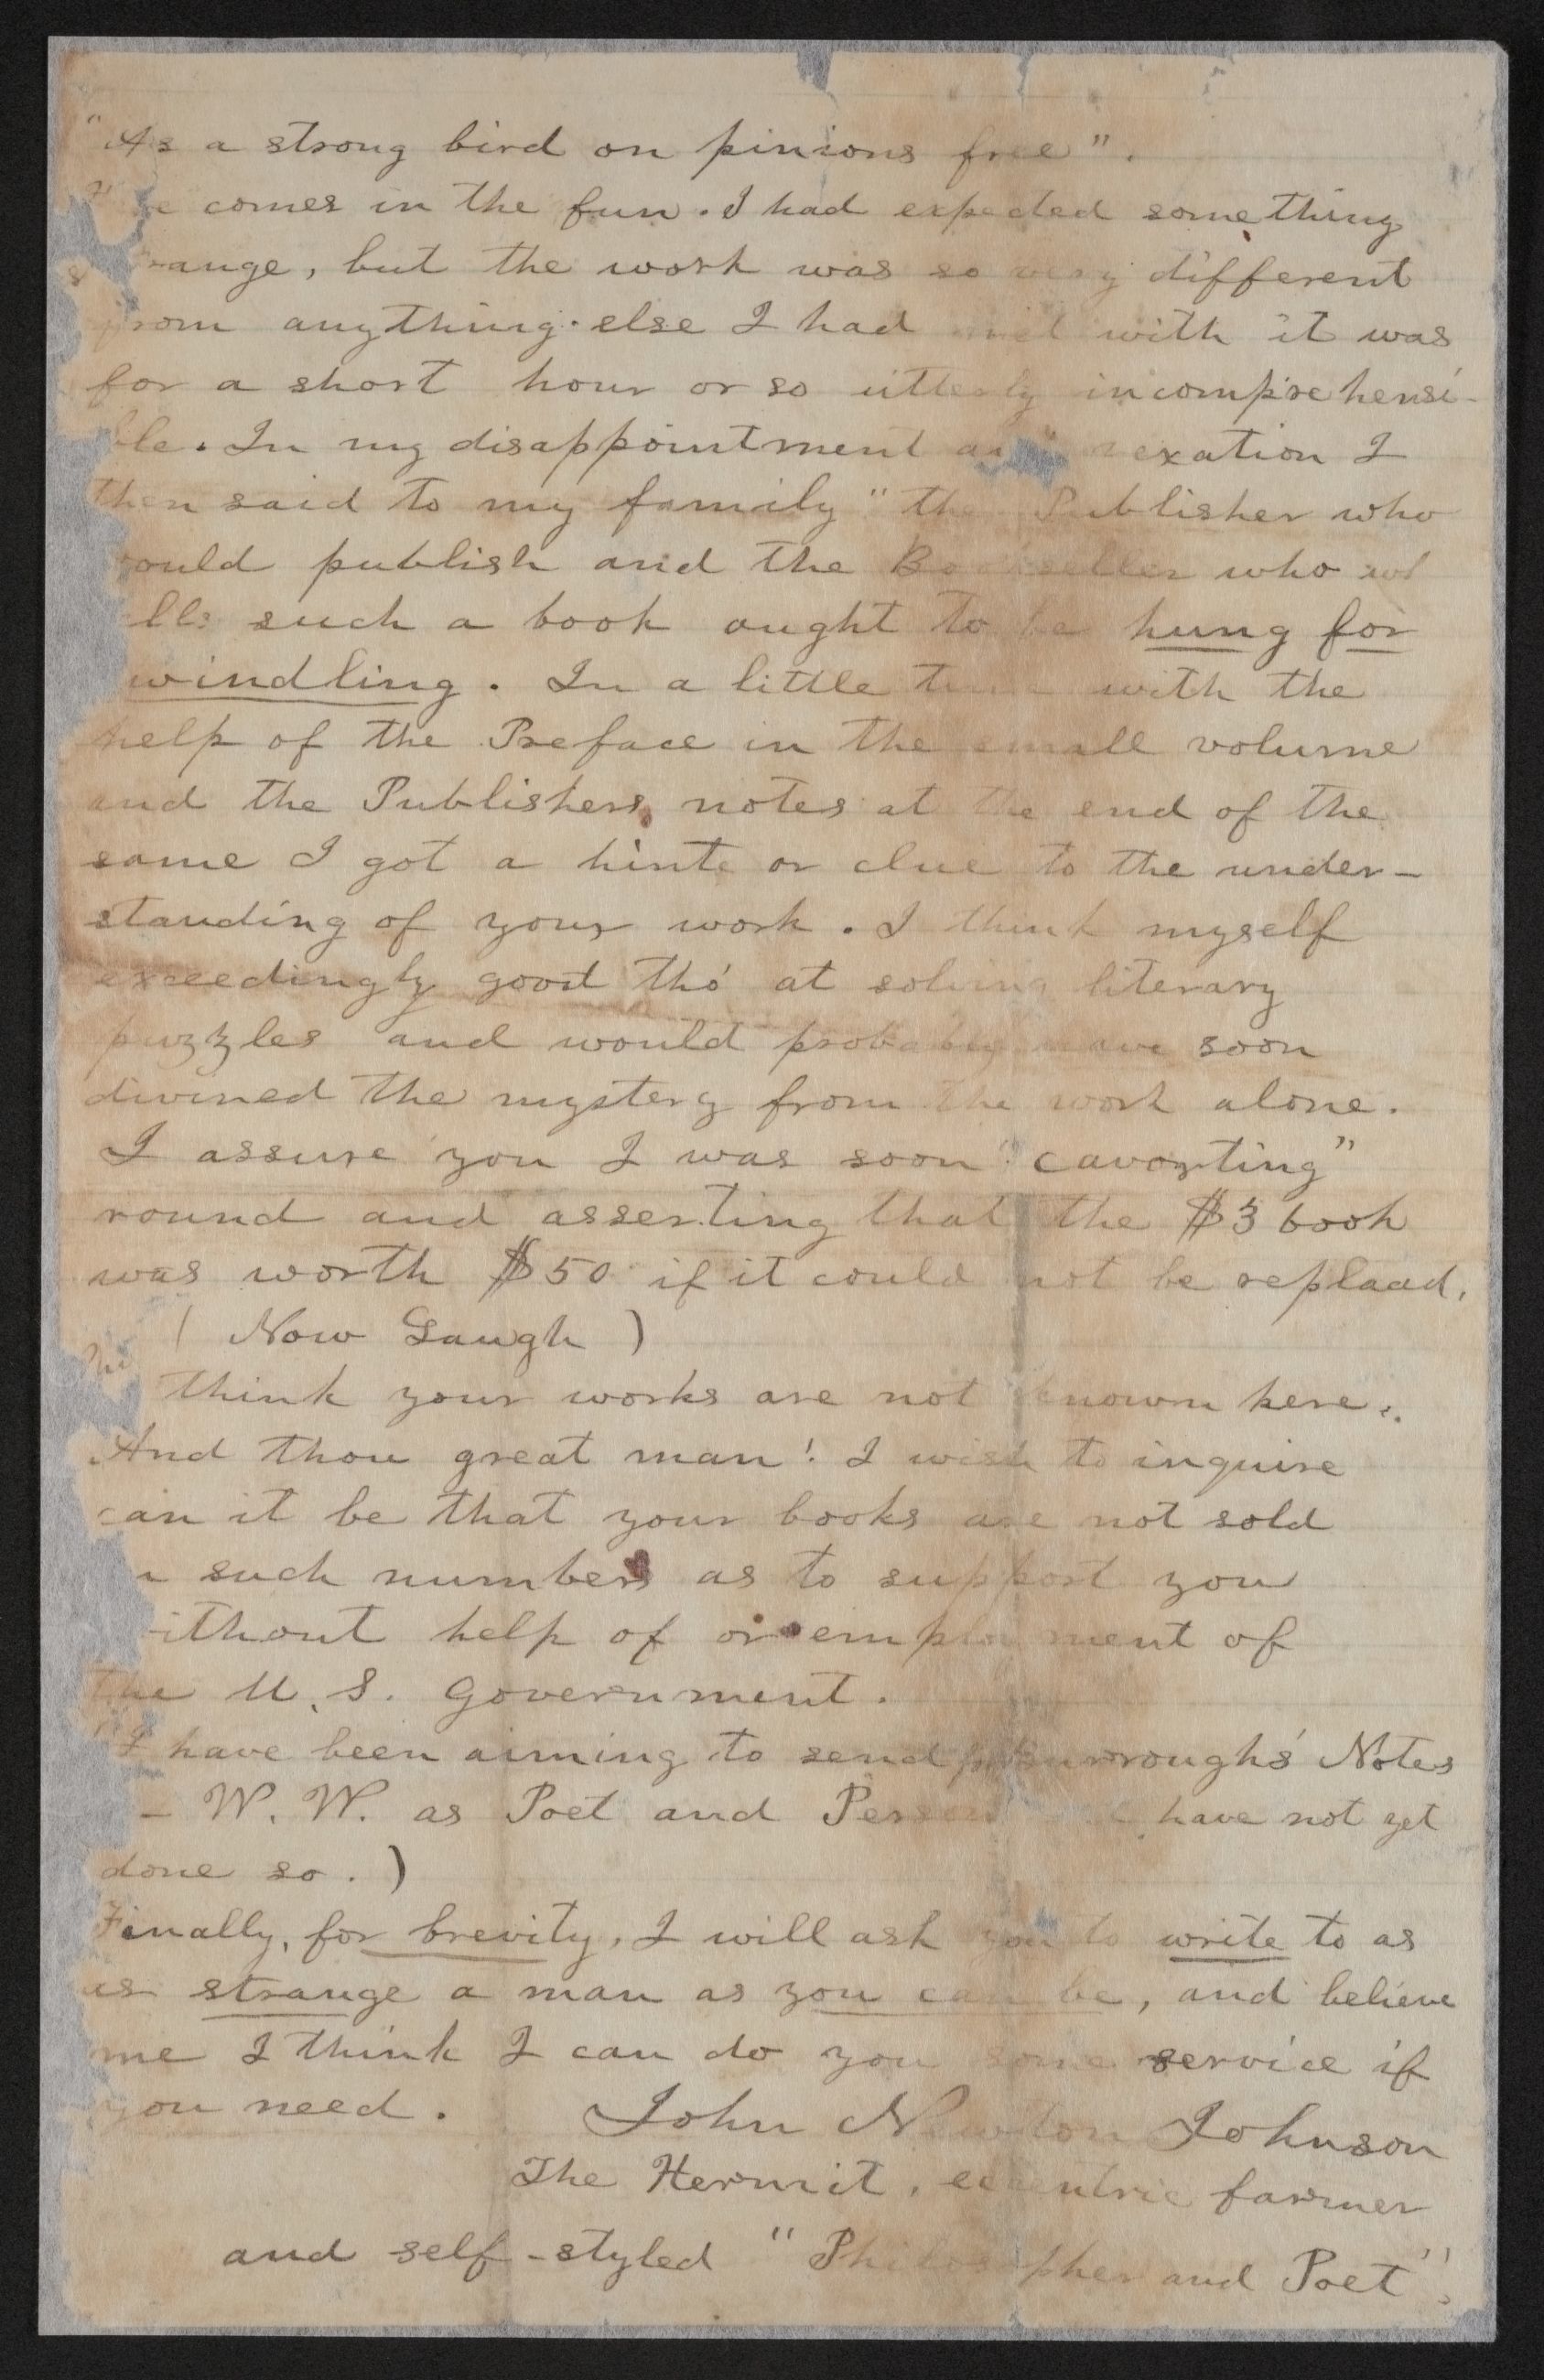 "As a strong bird on pinions free".
comes in the fun. I had expected something
range, but the work was so very different
from anything else I had met with it was
for a short hour or so utterly incomprehensi-
ble. In my disappointment and vexation I
then said to my family "the Publisher who
would publish and the Bookseller who
such a book ought to be hung for
windling. In a little time with the
help of the Preface in the small volume
and the Publishers notes at the end of the
same I got a hint or clue to the under-
standing of your work. I think myself
exceedingly good tho' at solving literary
puzzles and would probably have soon
divined the mystery from the work alone.
I assure you I was soon "cavorting"
round and asserting that the $3 book
was worth $50 if it could not be replaced.
( Now Laugh )
think your works are not known here.
And thou great man! I wish to inquire
can it be that your books are not sold
such numbers as to support you
ithout help of or employment of
the U.S. Government.
I have been aiming to send for Burroughs' Notes
– W. W. as Poet and Person have not yet
done so.)
Finally, for brevity, I will ask you to write to as
as strange a man as you can be, and believe
me I think I can do you some service if
you need. John Newton Johnson
The Hermit, eccentric farmer
and self-styled "Philosopher and Poet".